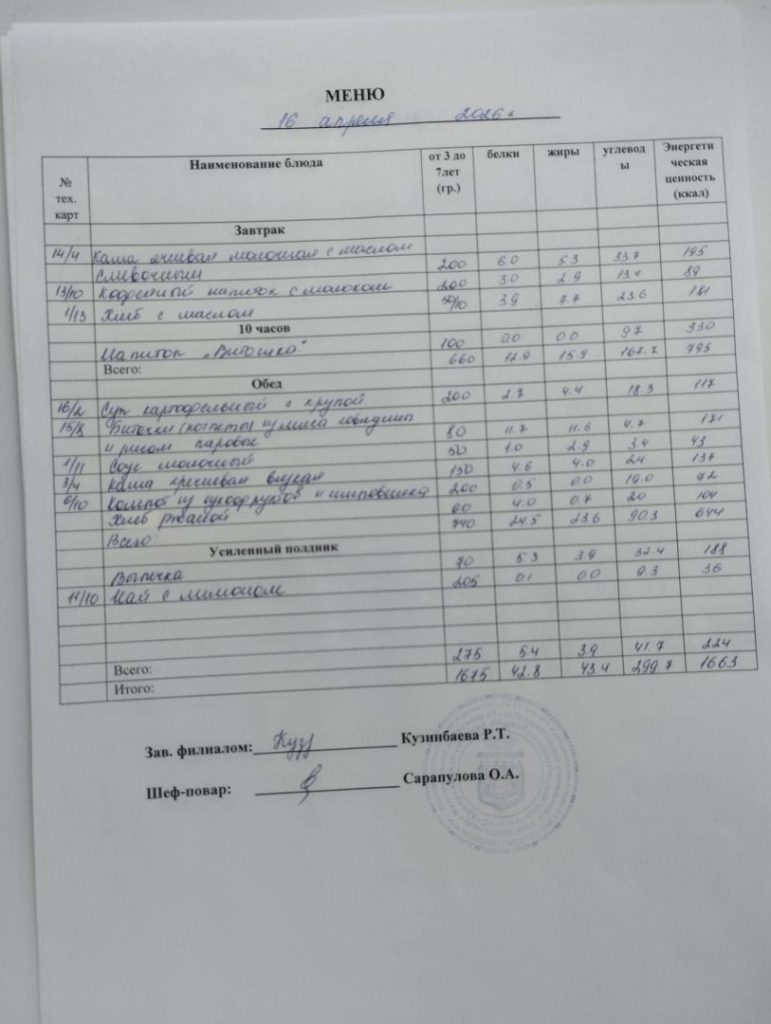 МЕНЮ
16 апреля 2026 г
№ тех. карт Наименование блюда от 3 до 7лет (гр.) белки жиры углевод ы Энергети ческая ценность (ккал)
Завтрак
14/4 Каша ячневая молочная с маслом
сливочным 200 6.0 5.3 33.7 195
13/10 Кофейный напиток с молоком 200 3.0 2.9 13.4 89
1/13 Хлеб с маслом 50/10 3.9 7.7 23.6 181
10 часов
Напиток „Витошка" 100 0.0 0.0 97 330
Всего: 660 12.9 15.9 167.7 795
Обед
16/2 Суп картофельный с крупой 200 2.7 4.4 18.3 117
15/8 Биточки (котлеты) из мяса говядины
и рисом паровые 80 11.7 11.6 4.7 171
1/11 Соус молочный 50 1.0 2.9 3.4 43
3/4 Каша гречневая вязкая 150 4.6 4.0 24 137
6/10 Компот из сухофруктов и шиповника 200 0.5 0.0 19.0 72
Хлеб ржаной 60 4.0 0.7 20 104
Всего: 740 24.5 23.6 90.3 644
Усиленный полдник
Выпечка 70 5.3 3.9 32.4 188
11/10 Чай с лимоном 205 0.1 0.0 9.3 36
275 5.4 3.9 41.7 224
Всего: 1675 42.8 43.4 299.7 1663
Итого:
Зав. филиалом: Куз Кузинбаева Р.Т.
Шеф-повар: Сарапулова О.А.